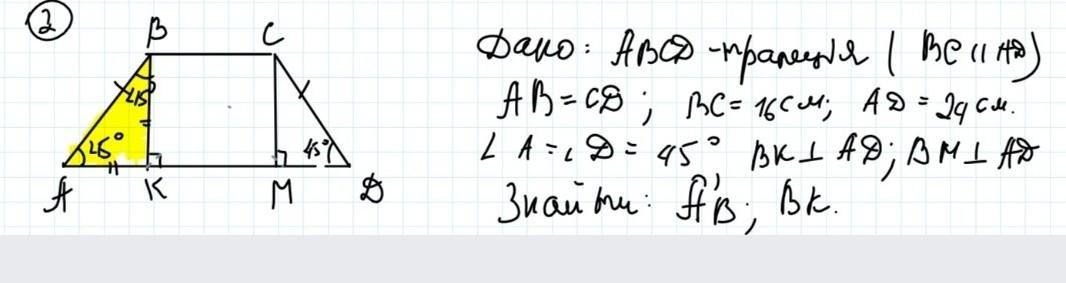 2
B C
45°
45° 45°
A K M D
Дано: ABCD - трапеція ( BC || AD)
AB = CD ; BC = 16 см; AD = 24 см.
∠ A = ∠ D = 45° BK ⊥ AD; BM ⊥ AD
Знайти: AB ; BK.